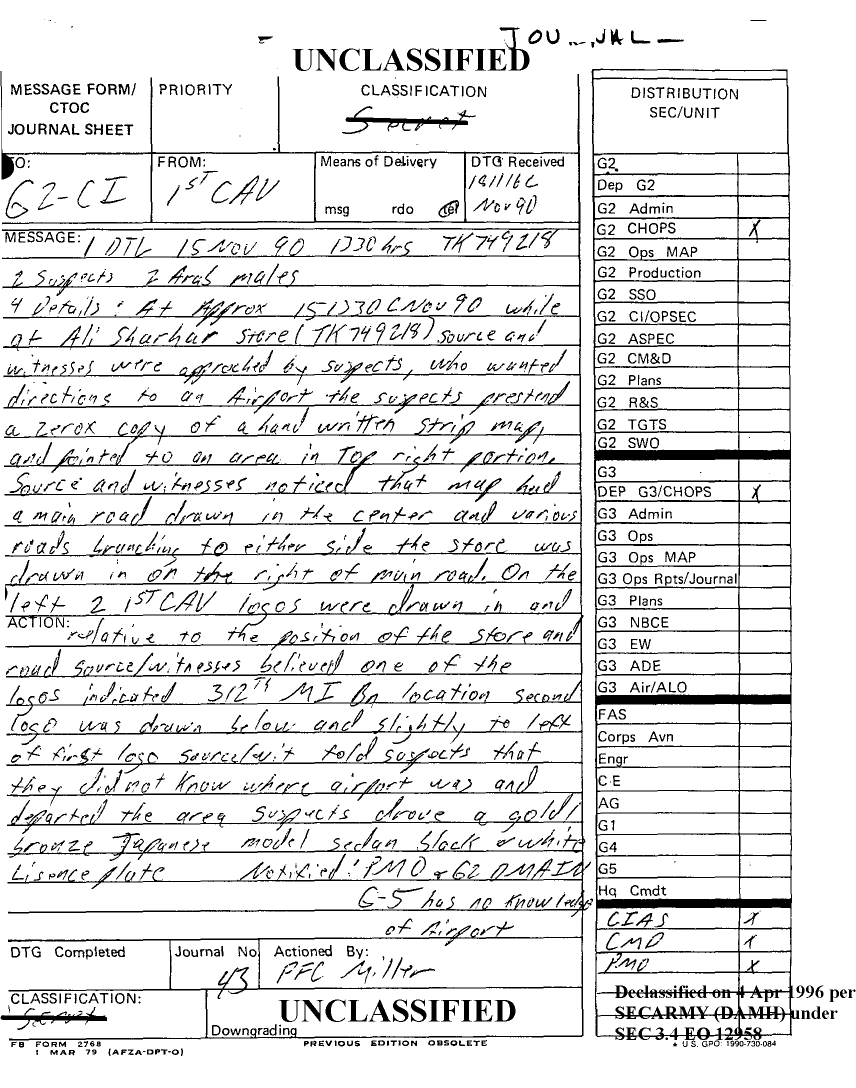 JOU NAL
UNCLASSIFIED
MESSAGE FORM/
CTOC
JOURNAL SHEET
PRIORITY
CLASSIFICATION
Secret
TO:
G2-CI
FROM:
1ST CAV
Means of Delivery
msg rdo tel
DTG Received
Nov 90
MESSAGE: 1 DTL 15 Nov 90 1330 hrs TK749218
2 Suspects 2 Arab males
4 Details: At Approx 151330C Nov 90 while
at Ali Sharhar Store (TK749218) source and
witnesses were approched by suspects, who wanted
directions to an Airport the suspects prestend
a zerox copy of a hand written strip map,
and pointed to an area in Top right portion.
Source and witnesses noticed that map had
a main road drawn in the center and various
roads branching to either side the store was
drawn in on the right of main road. On the
left 2 1ST CAV logos were drawn in and
ACTION: relative to the position of the store and
road source/witnesses believed one of the
logos indicated 312th MI Bn location second
logo was drawn below and slightly to left
of first logo source/wit told suspects that
they did not know where airport was and
departed the area suspects drove a gold/
bronze Japanese model sedan black & white
Lisence plate Notified: PMO & G2 DMAIN
G-5 has no knowledge
of Airport
DTG Completed
Journal No
43
Actioned By:
PFC Miller
CLASSIFICATION:
Secret
UNCLASSIFIED
Downgrading
FB FORM 2768
1 MAR 79 (AFZA-DPT-O)
PREVIOUS EDITION OBSOLETE
DISTRIBUTION
SEC/UNIT
G2
Dep G2
G2 Admin
G2 CHOPS X
G2 Ops MAP
G2 Production
G2 SSO
G2 CI/OPSEC
G2 ASPEC
G2 CM&D
G2 Plans
G2 R&S
G2 TGTS
G2 SWO
G3
DEP G3/CHOPS X
G3 Admin
G3 Ops
G3 Ops MAP
G3 Ops Rpts/Journal
G3 Plans
G3 NBCE
G3 EW
G3 ADE
G3 Air/ALO
FAS
Corps Avn
Engr
CE
AG
G1
G4
G5
Hq Cmdt
CIAS X
CMO X
PMO X
Declassified on 4 Apr 1996 per
SECARMY (DAMH) under
SEC 3.4 EO 12958
★ U.S. GPO: 1990-730-084